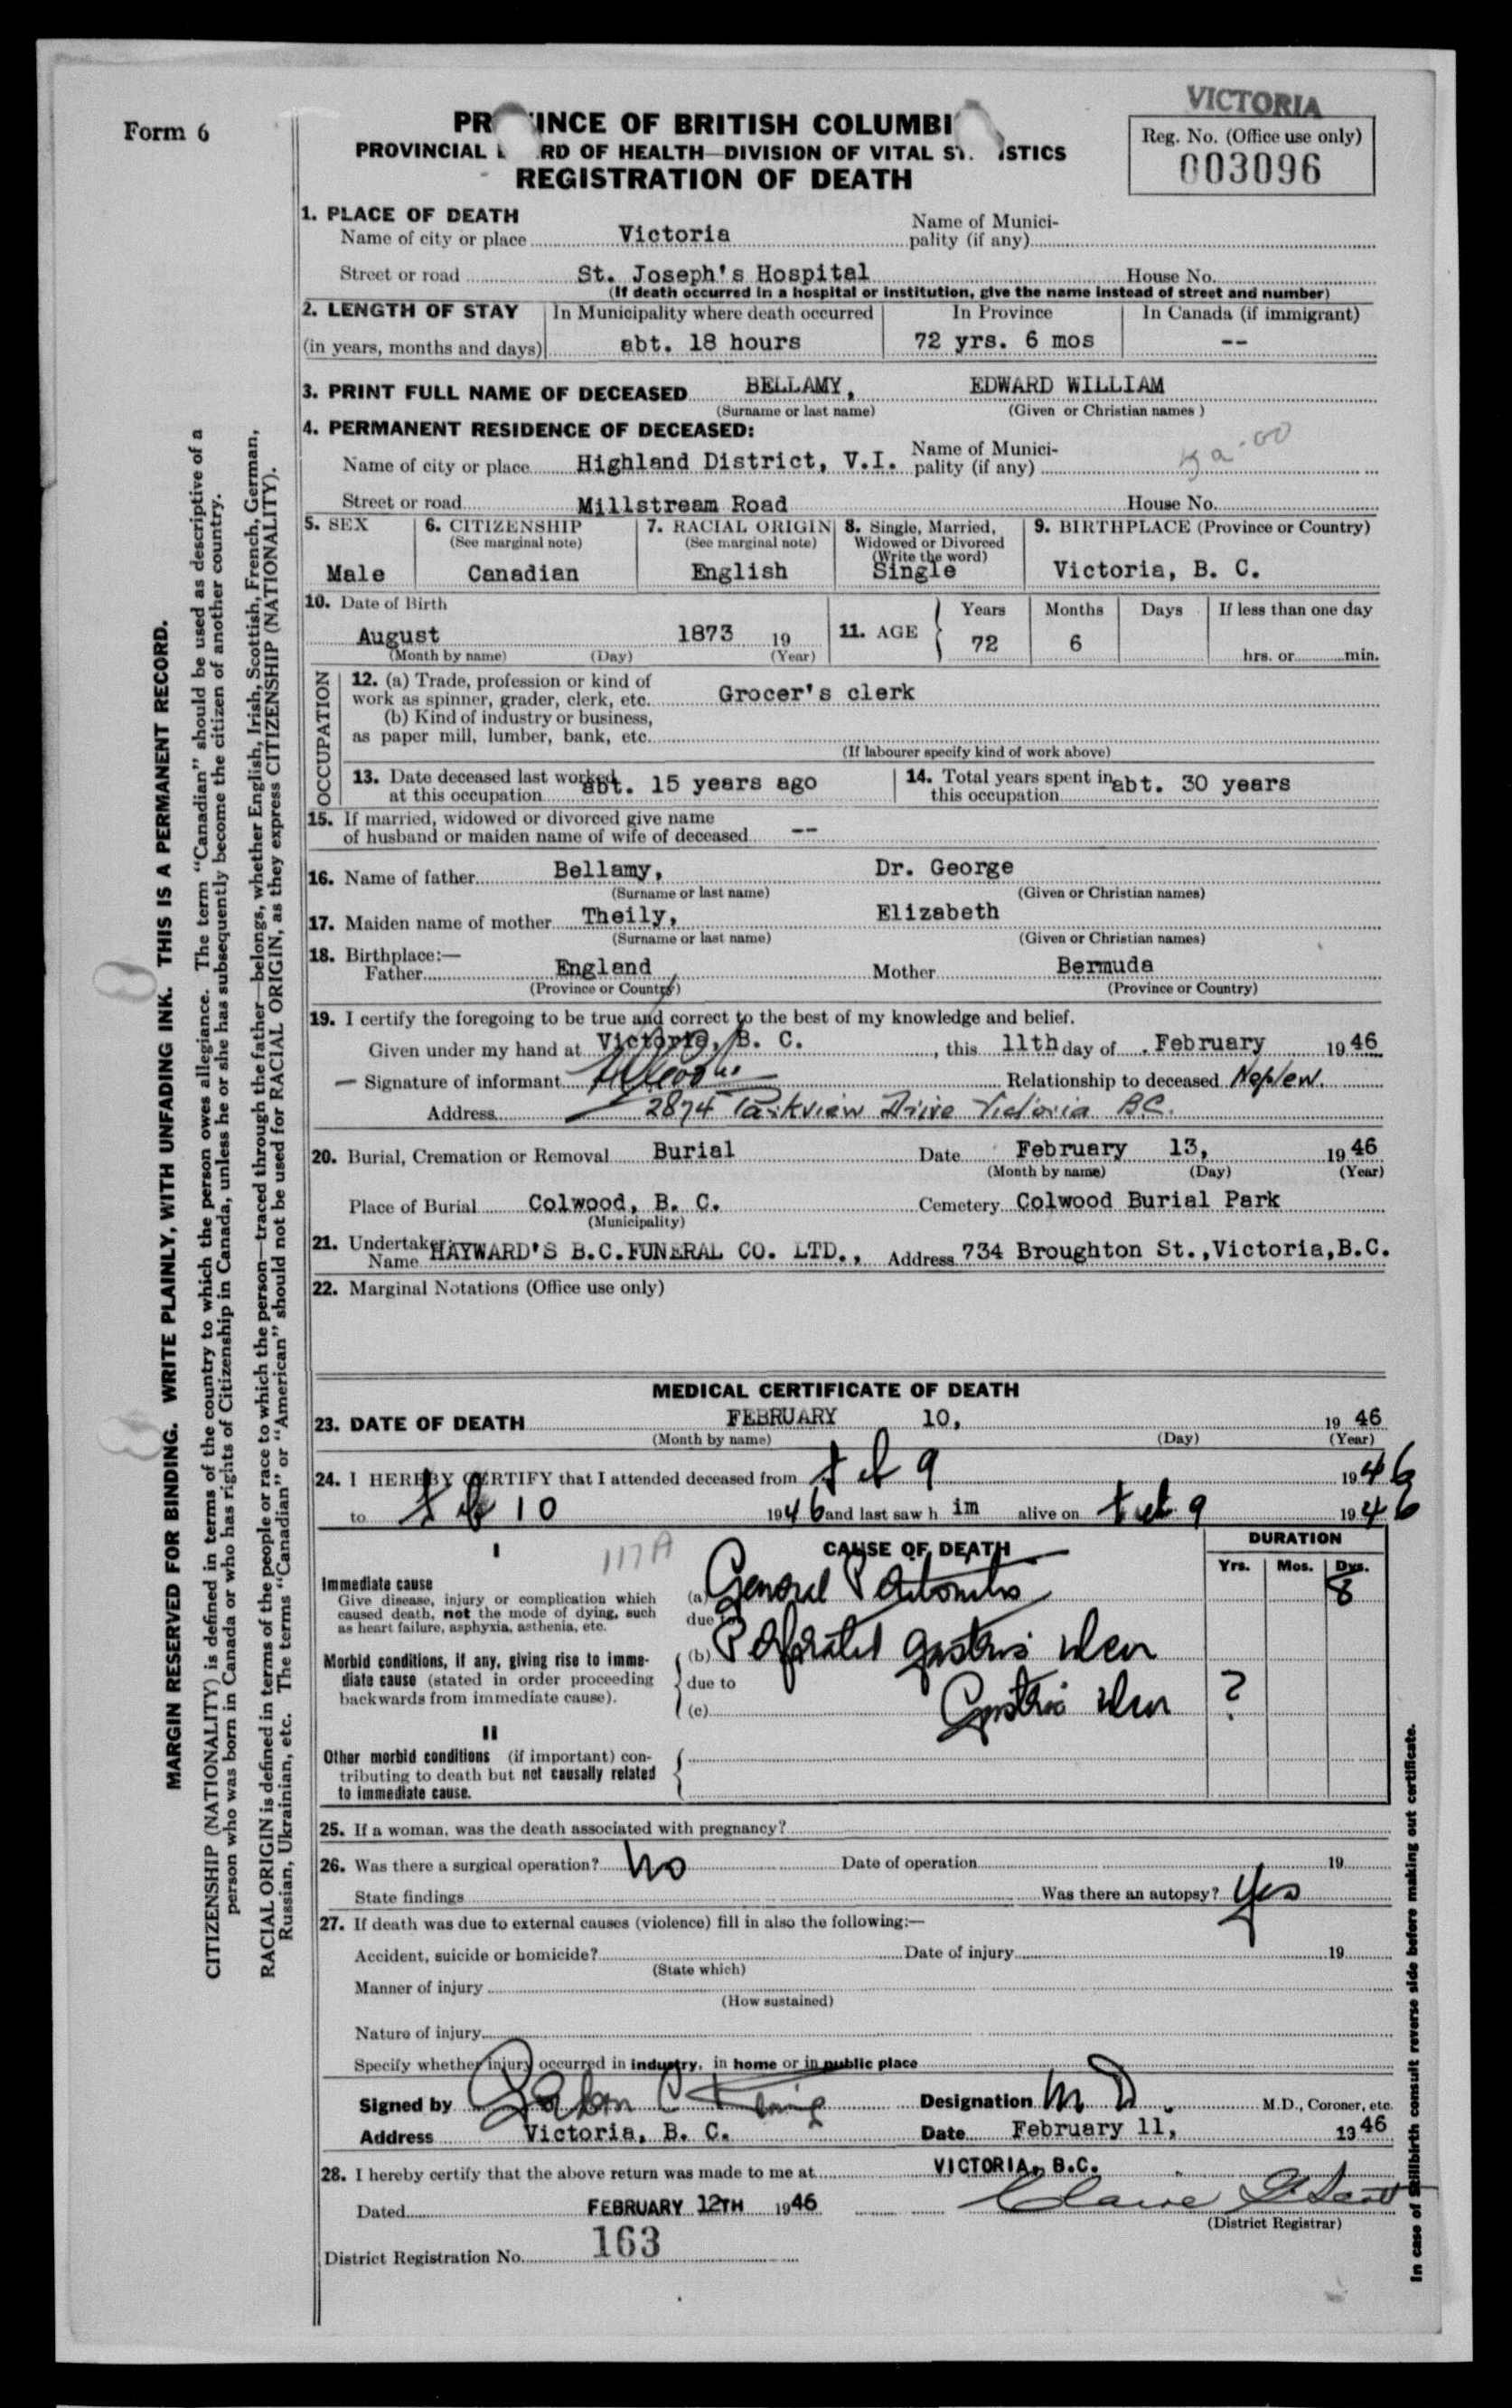 VICTORIA
Form 6
PR INCE OF BRITISH COLUMBI
Reg. No. (Office use only)
003096
PROVINCIAL RD OF HEALTH—DIVISION OF VITAL ST ISTICS
REGISTRATION OF DEATH
1. PLACE OF DEATH
Name of city or place Victoria Name of Munici-pality (if any)
Street or road St. Joseph's Hospital House No.
(If death occurred in a hospital or institution, give the name instead of street and number)
2. LENGTH OF STAY In Municipality where death occurred In Province In Canada (if immigrant)
(in years, months and days) abt. 18 hours 72 yrs. 6 mos --
3. PRINT FULL NAME OF DECEASED BELLAMY, EDWARD WILLIAM
(Surname or last name) (Given or Christian names)
4. PERMANENT RESIDENCE OF DECEASED:
Name of city or place Highland District, V.I. Name of Munici-pality (if any)
Street or road Millstream Road House No.
5. SEX 6. CITIZENSHIP 7. RACIAL ORIGIN 8. Single, Married, 9. BIRTHPLACE (Province or Country)
(See marginal note) (See marginal note) Widowed or Divorced
(Write the word)
Male Canadian English Single Victoria, B. C.
10. Date of Birth 11. AGE Years Months Days If less than one day
August 1873 19 72 6
(Month by name) (Day) (Year) hrs. or min.
OCCUPATION
12. (a) Trade, profession or kind of
work as spinner, grader, clerk, etc. Grocer's clerk
(b) Kind of industry or business,
as paper mill, lumber, bank, etc.
(If labourer specify kind of work above)
13. Date deceased last worked 14. Total years spent in
at this occupation abt. 15 years ago this occupation abt. 30 years
15. If married, widowed or divorced give name
of husband or maiden name of wife of deceased --
16. Name of father Bellamy, Dr. George
(Surname or last name) (Given or Christian names)
17. Maiden name of mother Theily, Elizabeth
(Surname or last name) (Given or Christian names)
18. Birthplace:—
Father England Mother Bermuda
(Province or Country) (Province or Country)
19. I certify the foregoing to be true and correct to the best of my knowledge and belief.
Given under my hand at Victoria, B. C. , this 11th day of February 1946
Signature of informant Relationship to deceased Nephew.
Address 2874 Parkview Drive Victoria B.C.
20. Burial, Cremation or Removal Burial Date February 13, 1946
(Month by name) (Day) (Year)
Place of Burial Colwood, B. C. Cemetery Colwood Burial Park
(Municipality)
21. Undertaker:
Name HAYWARD'S B.C.FUNERAL CO. LTD., Address 734 Broughton St.,Victoria,B.C.
22. Marginal Notations (Office use only)
MEDICAL CERTIFICATE OF DEATH
23. DATE OF DEATH FEBRUARY 10, 19 46
(Month by name) (Day) (Year)
24. I HEREBY CERTIFY that I attended deceased from Feb 9 1946
to Feb 10 1946 and last saw h im alive on Feb 9 1946
I 117A CAUSE OF DEATH DURATION
Yrs. Mos. Dys.
Immediate cause
Give disease, injury or complication which (a) General Peritonitis
caused death, not the mode of dying, such due to
as heart failure, asphyxia, asthenia, etc.
Morbid conditions, if any, giving rise to imme- (b) Perforated gastric ulcer
diate cause (stated in order proceeding due to
backwards from immediate cause). (c) Gastric ulcer ?
II
Other morbid conditions (if important) con-
tributing to death but not causally related
to immediate cause.
25. If a woman, was the death associated with pregnancy?
26. Was there a surgical operation? No Date of operation 19
State findings Was there an autopsy? Yes
27. If death was due to external causes (violence) fill in also the following:—
Accident, suicide or homicide? Date of injury 19
(State which)
Manner of injury
(How sustained)
Nature of injury
Specify whether injury occurred in industry, in home or in public place
Signed by Designation M D. M.D., Coroner, etc.
Address Victoria, B. C. Date February 11, 1946
28. I hereby certify that the above return was made to me at VICTORIA, B.C.
Dated FEBRUARY 12TH 1946 Claire
(District Registrar)
District Registration No. 163
MARGIN RESERVED FOR BINDING. WRITE PLAINLY, WITH UNFADING INK. THIS IS A PERMANENT RECORD.
CITIZENSHIP (NATIONALITY) is defined in terms of the country to which the person owes allegiance. The term "Canadian" should be used as descriptive of a
person who was born in Canada or who has rights of Citizenship in Canada, unless he or she has subsequently become the citizen of another country.
RACIAL ORIGIN is defined in terms of the people or race to which the person—traced through the father—belongs, whether English, Irish, Scottish, French, German,
Russian, Ukrainian, etc. The terms "Canadian" or "American" should not be used for RACIAL ORIGIN, as they express CITIZENSHIP (NATIONALITY).
In case of stillbirth consult reverse side before making out certificate.